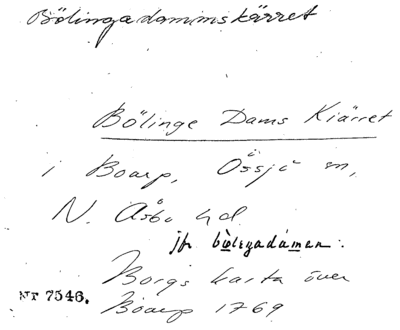 Bölingadammskärret
Bölinge Dams Kiärret
i Boarp, Össjö sn,
N. Åsbo hd
jfr bölegadámen.
Borgs karta över
Nr 7546. Boarp 1769